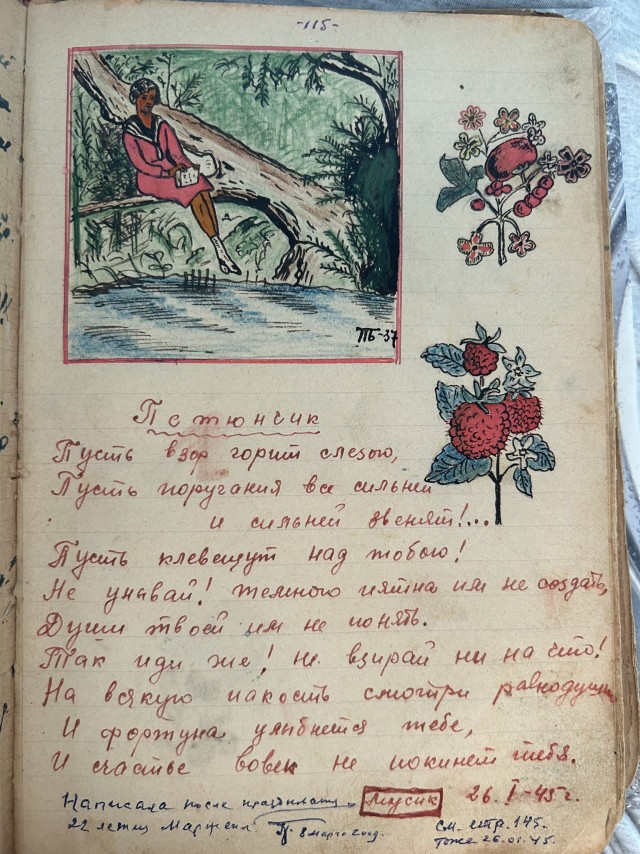 -115-
ТБ-37
Петюнчик
Пусть взор горит слезою,
Пусть поругания все сильней
и сильней звенят!...
Пусть клевещут над тобою!
Не унывай! темного пятна им не создать,
Души твоей им не понять.
Так иди же! Не взирай ни на что!
На всякую пакость смотри равнодушно
И фортуна улыбнется тебе,
И счастье вовек не покинет тебя.
Мусик 26.I-45г.
Написала после
22 летия 8 марта
см. стр. 145.
тоже 26.01.45.